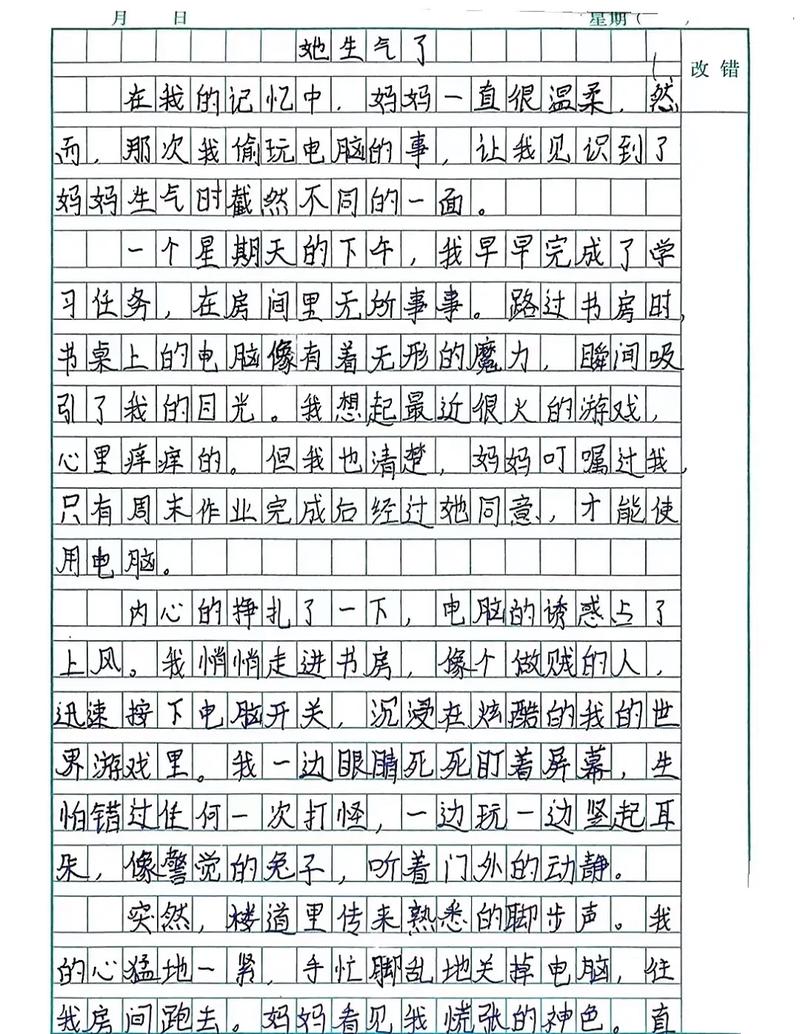 月 日 星期( )
她生气了
改错
在我的记忆中，妈妈一直很温柔，然
而，那次我偷玩电脑的事，让我见识到了
妈妈生气时截然不同的一面。
一个星期天的下午，我早早完成了学
习任务，在房间里无所事事。路过书房时，
书桌上的电脑像有着无形的魔力，瞬间吸
引了我的目光。我想起最近很火的游戏，
心里痒痒的。但我也清楚，妈妈叮嘱过我，
只有周末作业完成后经过她同意，才能使
用电脑。
内心的挣扎了一下，电脑的诱惑占了
上风。我悄悄走进书房，像个做贼的人，
迅速按下电脑开关，沉浸在炫酷的我的世
界游戏里。我一边眼睛死死盯着屏幕，生
怕错过任何一次打怪，一边玩一边竖起耳
朵，像警觉的兔子，听着门外的动静。
突然，楼道里传来熟悉的脚步声。我
的心猛地一紧，手忙脚乱地关掉电脑，往
我房间跑去。妈妈看见我慌张的神色。直